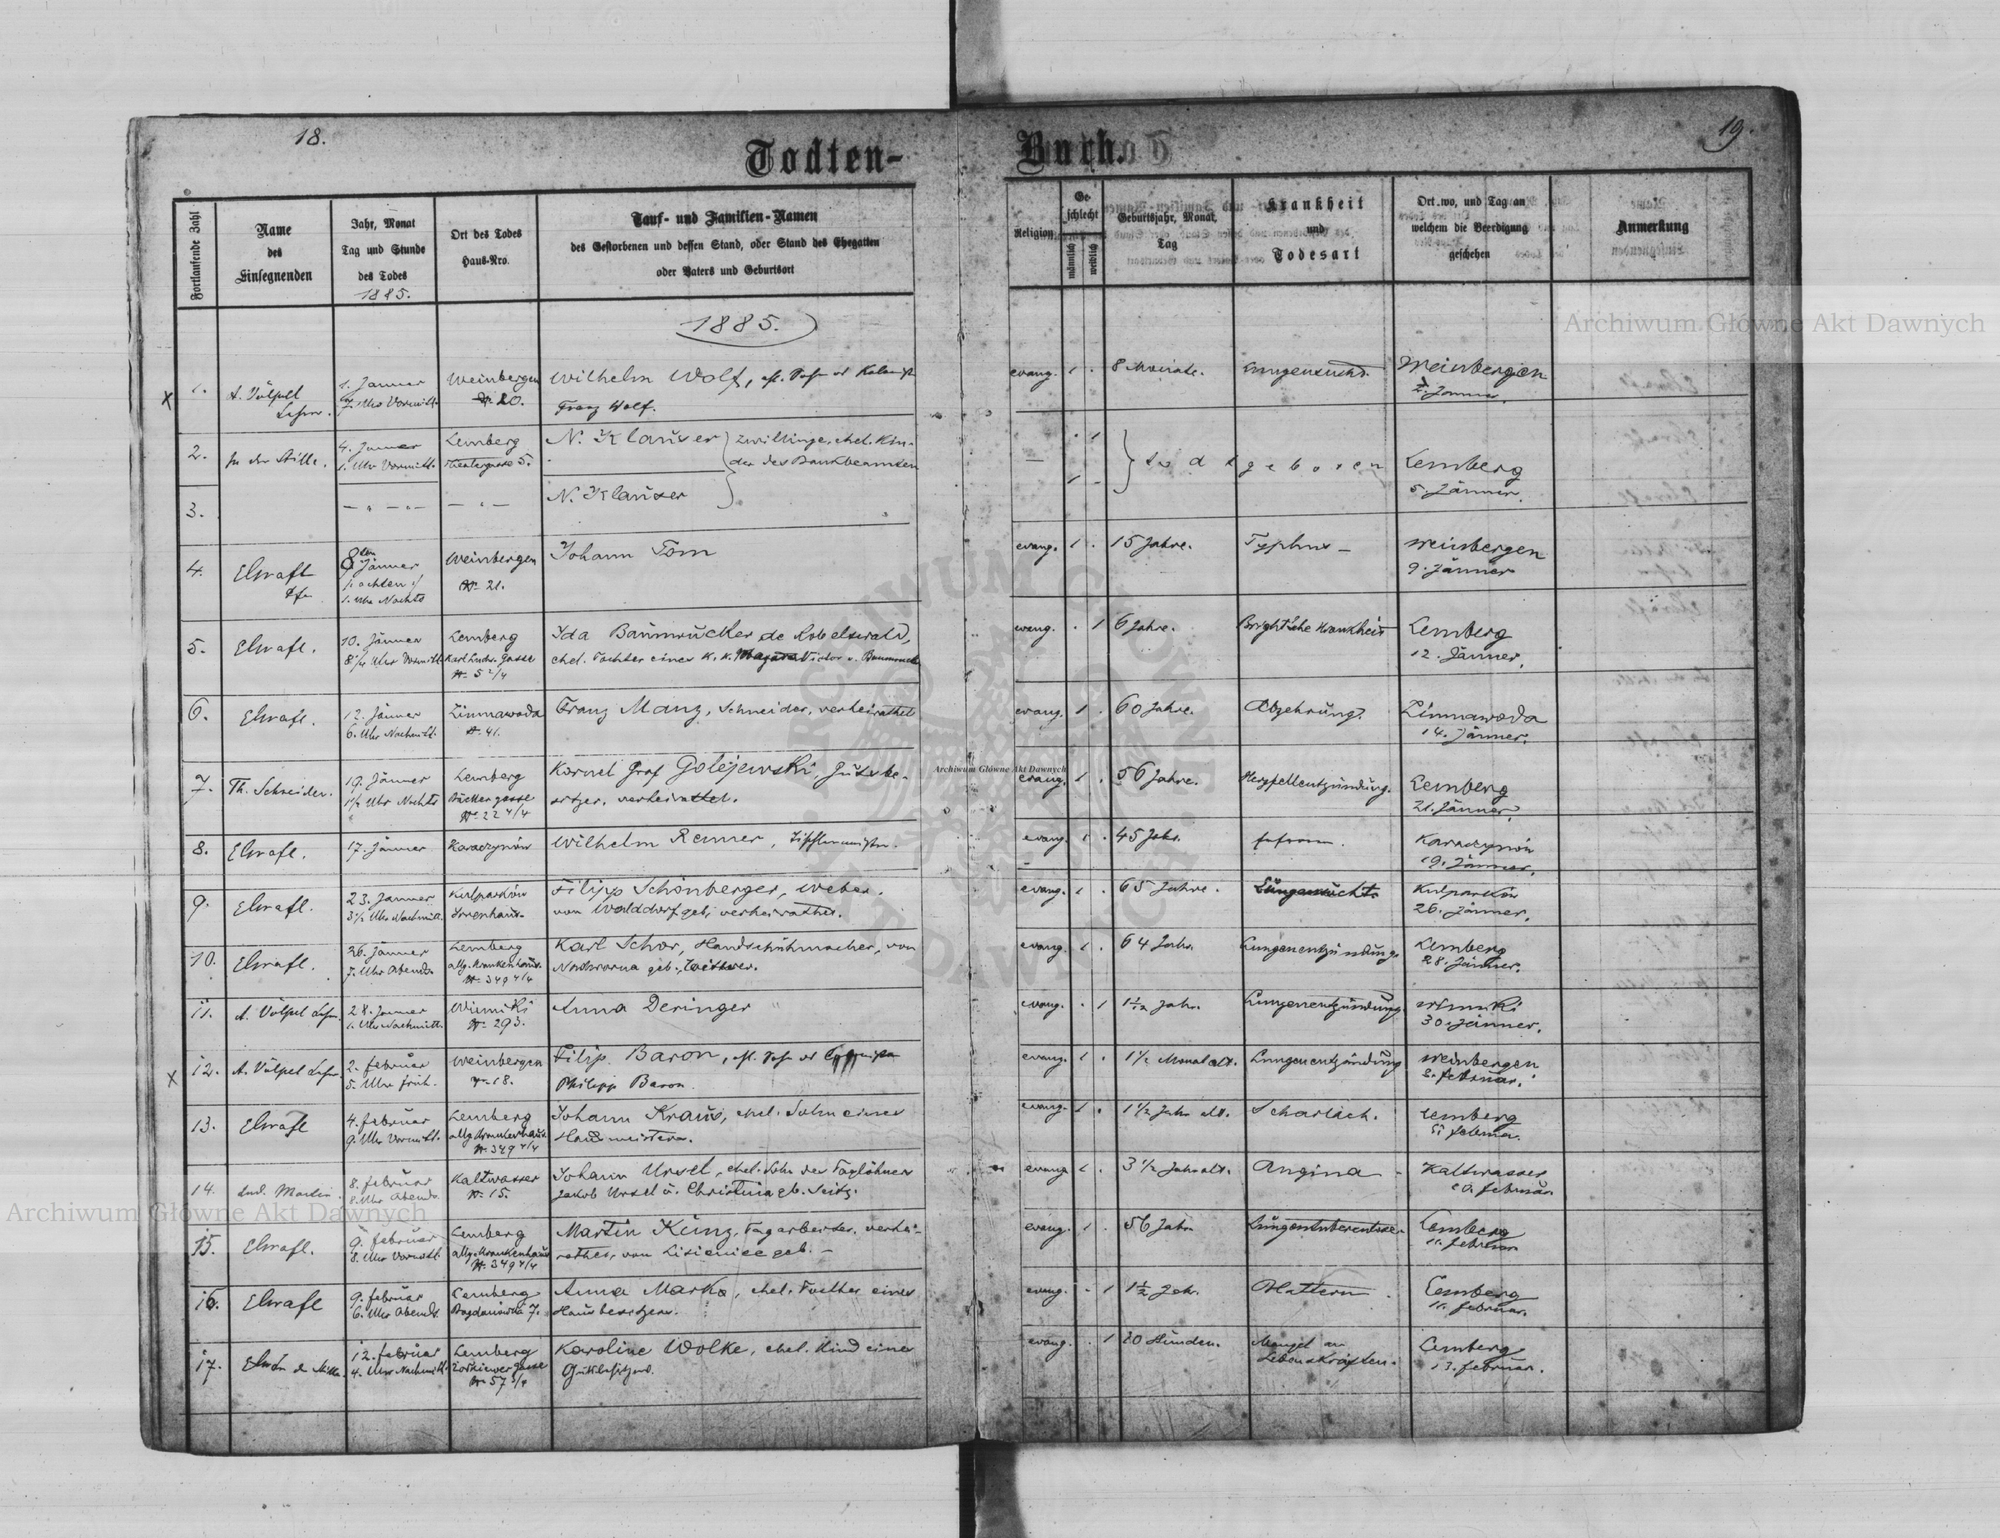 18.
19.
Todten-
Buch.
Fortlaufende Zahl
Name
des
Einsegnenden
Jahr, Monat
Tag und Stunde
des Todes
1885.
Ort des Todes
Haus-Nro.
Tauf- und Familien-Namen
des Gestorbenen und dessen Stand, oder Stand des Ehegatten
oder Vaters und Geburtsort
Religion
Geschlecht
männlich
weiblich
Geburtsjahr, Monat,
Tag
Krankheit
und
Todesart
Ort, wo, und Tag an
welchem die Beerdigung
geschehen
Anmerkung
1885.
1.
A. Völpel
Lehrer.
1. Jänner
7. Uhr Vormitt.
Weinbergen
N. 20.
Wilhelm Wolf,
Franz Wolf.
evang.
1
8 Monate.
Lungensucht.
Weinbergen
Jänner.
2.
In der Stille.
4. Jänner
1. Uhr Vormitt.
Lemberg
Theatergasse 5.
N. Klauser
zwillinge, ehel. Kin-
der des Bankbeamten
todtgeboren
Lemberg
5. Jänner.
3.
N. Klauser
4.
Elsrafl
8ten
Jänner
achten
1. Uhr Nachts
Weinbergen
N. 21.
Johann Tom
evang.
1
15 Jahre.
Typhus
Weinbergen
9. Jänner
5.
Elsrafl.
10. Jänner
Uhr Vormitt.
Lemberg
Gasse
N. 5 2/4
Ida Baumrucker de Robelswald,
ehel. Tochter eines k. k. Victor v. Baumrucker
evang.
1
6 Jahre.
Bright'sche Krankheit
Lemberg
12. Jänner.
6.
Elsrafl.
12. Jänner
6. Uhr Nachmitt.
Zimnawoda
N. 41.
Franz Manz, Schneider, verheirathet
evang.
1
60 Jahre.
Abzehrung.
Zimnawoda
14. Jänner.
7.
Th. Schneider.
19. Jänner
Uhr Nachts
Lemberg
N. 22 4/4
Kornel Graf Golejewski, Gutsbe-
sitzer, verheirathet.
evang.
1
56 Jahre.
Herzfellentzündung.
Lemberg
21. Jänner.
8.
Elsrafl.
17. Jänner
Karaczynów
Wilhelm Renner,
evang.
1
45 Jahr.
Karaczynów
19. Jänner.
9.
Elsrafl.
23. Jänner
3 1/2 Uhr Nachmitt.
Kulparków
Irrenhaus.
Filipp Schönberger, Weber.
von Walddorf geb., verheirathet.
evang.
1
65 Jahre.
Lungensucht.
Kulparków
26. Jänner.
10.
Elsrafl.
26. Jänner
7. Uhr Abends
Lemberg
allg. Krankenhaus.
N. 349 4/4
Karl Schor, Handschuhmacher, von
Nadworna geb., Wittwer.
evang.
1
64 Jahr.
Lungenentzündung.
Lemberg
28. Jänner.
11.
A. Völpel Lehrer
28. Jänner
1. Uhr Nachmitt.
Winniki
N. 293.
Anna Deringer
evang.
1
1 1/12 Jahr.
Lungenentzündung
Winniki
30. Jänner.
12.
A. Völpel Lehrer
2. Februar
5. Uhr früh.
Weinbergen
N. 18.
Filip Baron,
Philipp Baron.
evang.
1
1 1/2 Monat alt.
Lungenentzündung
Weinbergen
Februar.
13.
Elsrafl
4. Februar
9. Uhr Vormitt.
Lemberg
allg. Krankenhaus.
N. 349 4/4
Johann Kraus, ehel. Sohn einer
Hausmeisterin.
evang.
1
1 1/2 Jahr alt.
Scharlach.
Lemberg
Februar.
14.
Lud. Martin.
8. Februar
8. Uhr Abends
Kaltwasser
N. 15.
Johann Ursel, ehel. Sohn des Taglöhners
Jakob Ursel u. Christina geb. Seitz.
evang.
1
3 1/2 Jahr alt.
Angina
Kaltwasser
10. Februar.
15.
Elsrafl.
9. Februar
8. Uhr Vormitt.
Lemberg
allg. Krankenhaus
N. 349 4/4
Martin Kunz, Tagarbeiter, verhei-
rathet, von Lisienice geb. –
evang.
1
56 Jahr
Lemberg
11. Februar
16.
Elsrafl
9. Februar
6. Uhr Abends
Lemberg
Bogdanówka 7.
Anna Marka, ehel. Tochter eines
Hausbesitzers.
evang.
1
1 1/2 Jahr.
Blattern.
Lemberg
11. Februar.
17.
12. Februar
4. Uhr Nachmitt.
Lemberg
Zolkiewer gasse
N. 57
Karoline Wolke, ehel. Kind eines
Gutsbesitzers.
evang.
1
20 Stunden.
Mangel an
Lebenskräften.
Lemberg
13. Februar.
Archiwum Główne Akt Dawnych
Archiwum Główne Akt Dawnych
Archiwum Główne Akt Dawnych